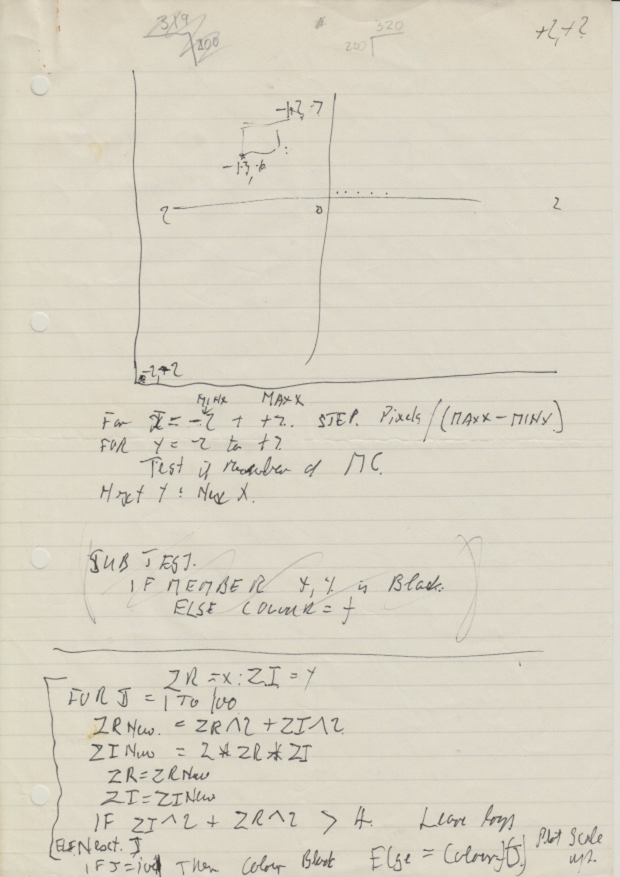 319
200
320
200
+2,+2
-1.2, .7
-1.3, .6
2 0 2
-2,+2
MINX MAXX
For X = -2 + +2. STEP. Pixels/(MAXX-MINX)
FOR Y = -2 to +2
Test if member of MC.
Next Y: Next X.
SUB TEST.
IF MEMBER X, Y is Black.
ELSE COLOUR = f
ZR = x: ZI = Y
FOR J = 1 TO 100
ZRNew. = ZR^2 + ZI^2
ZINew = 2*ZR*ZI
ZR=ZRNew
ZI=ZINew
IF ZI^2 + ZR^2 > 4. Leave loop
Next. J
IF J=100 Then Colour Black Else = Colour f(J)
Plot Scale